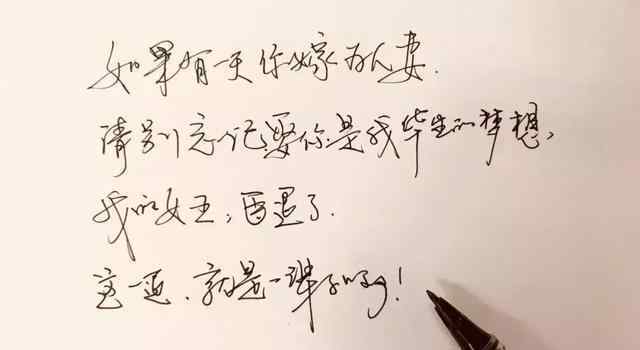 如果有一天你嫁为人妻.
请别忘记娶你是我毕生的梦想,
我的女王,再退了.
这一退.就是一辈子啊!